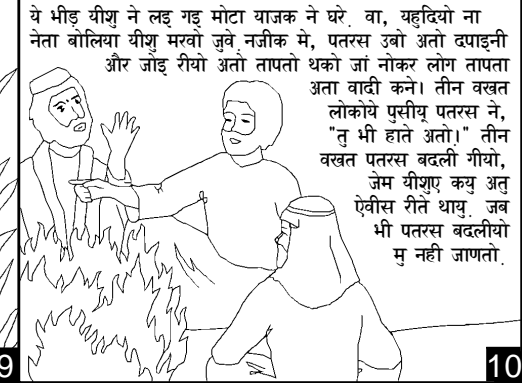 ये भीड़ यीशु ने लइ गइ मोटा याजक ने घरे. वा, यहुदियो ना
नेता बोलिया यीशु मरवो जुवे. नजीक मे, पतरस उबो अतो दपाइनी
और जोइ रीयो अतो तापतो थको जां नोकर लोग तापता
अता वादी कने। तीन वखत
लोकोये पुसीयू पतरस ने,
"तु भी हाते अतो।" तीन
वखत पतरस बदली गीयो,
जेम यीशुए कयु अतु
ऐवीस रीते थायु. जब
भी पतरस बदलीयो
मु नही जाणतो.
9
10